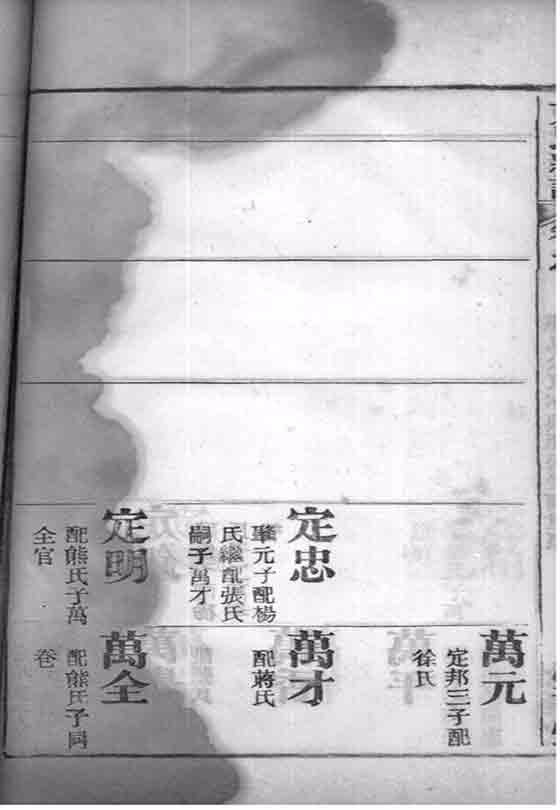 定忠
肇元子配楊
氏繼配張氏
嗣子萬才
定明
配熊氏子萬
全官
萬元
定邦三子配
徐氏
萬才
配蔣氏
萬全
配熊氏子同
卷